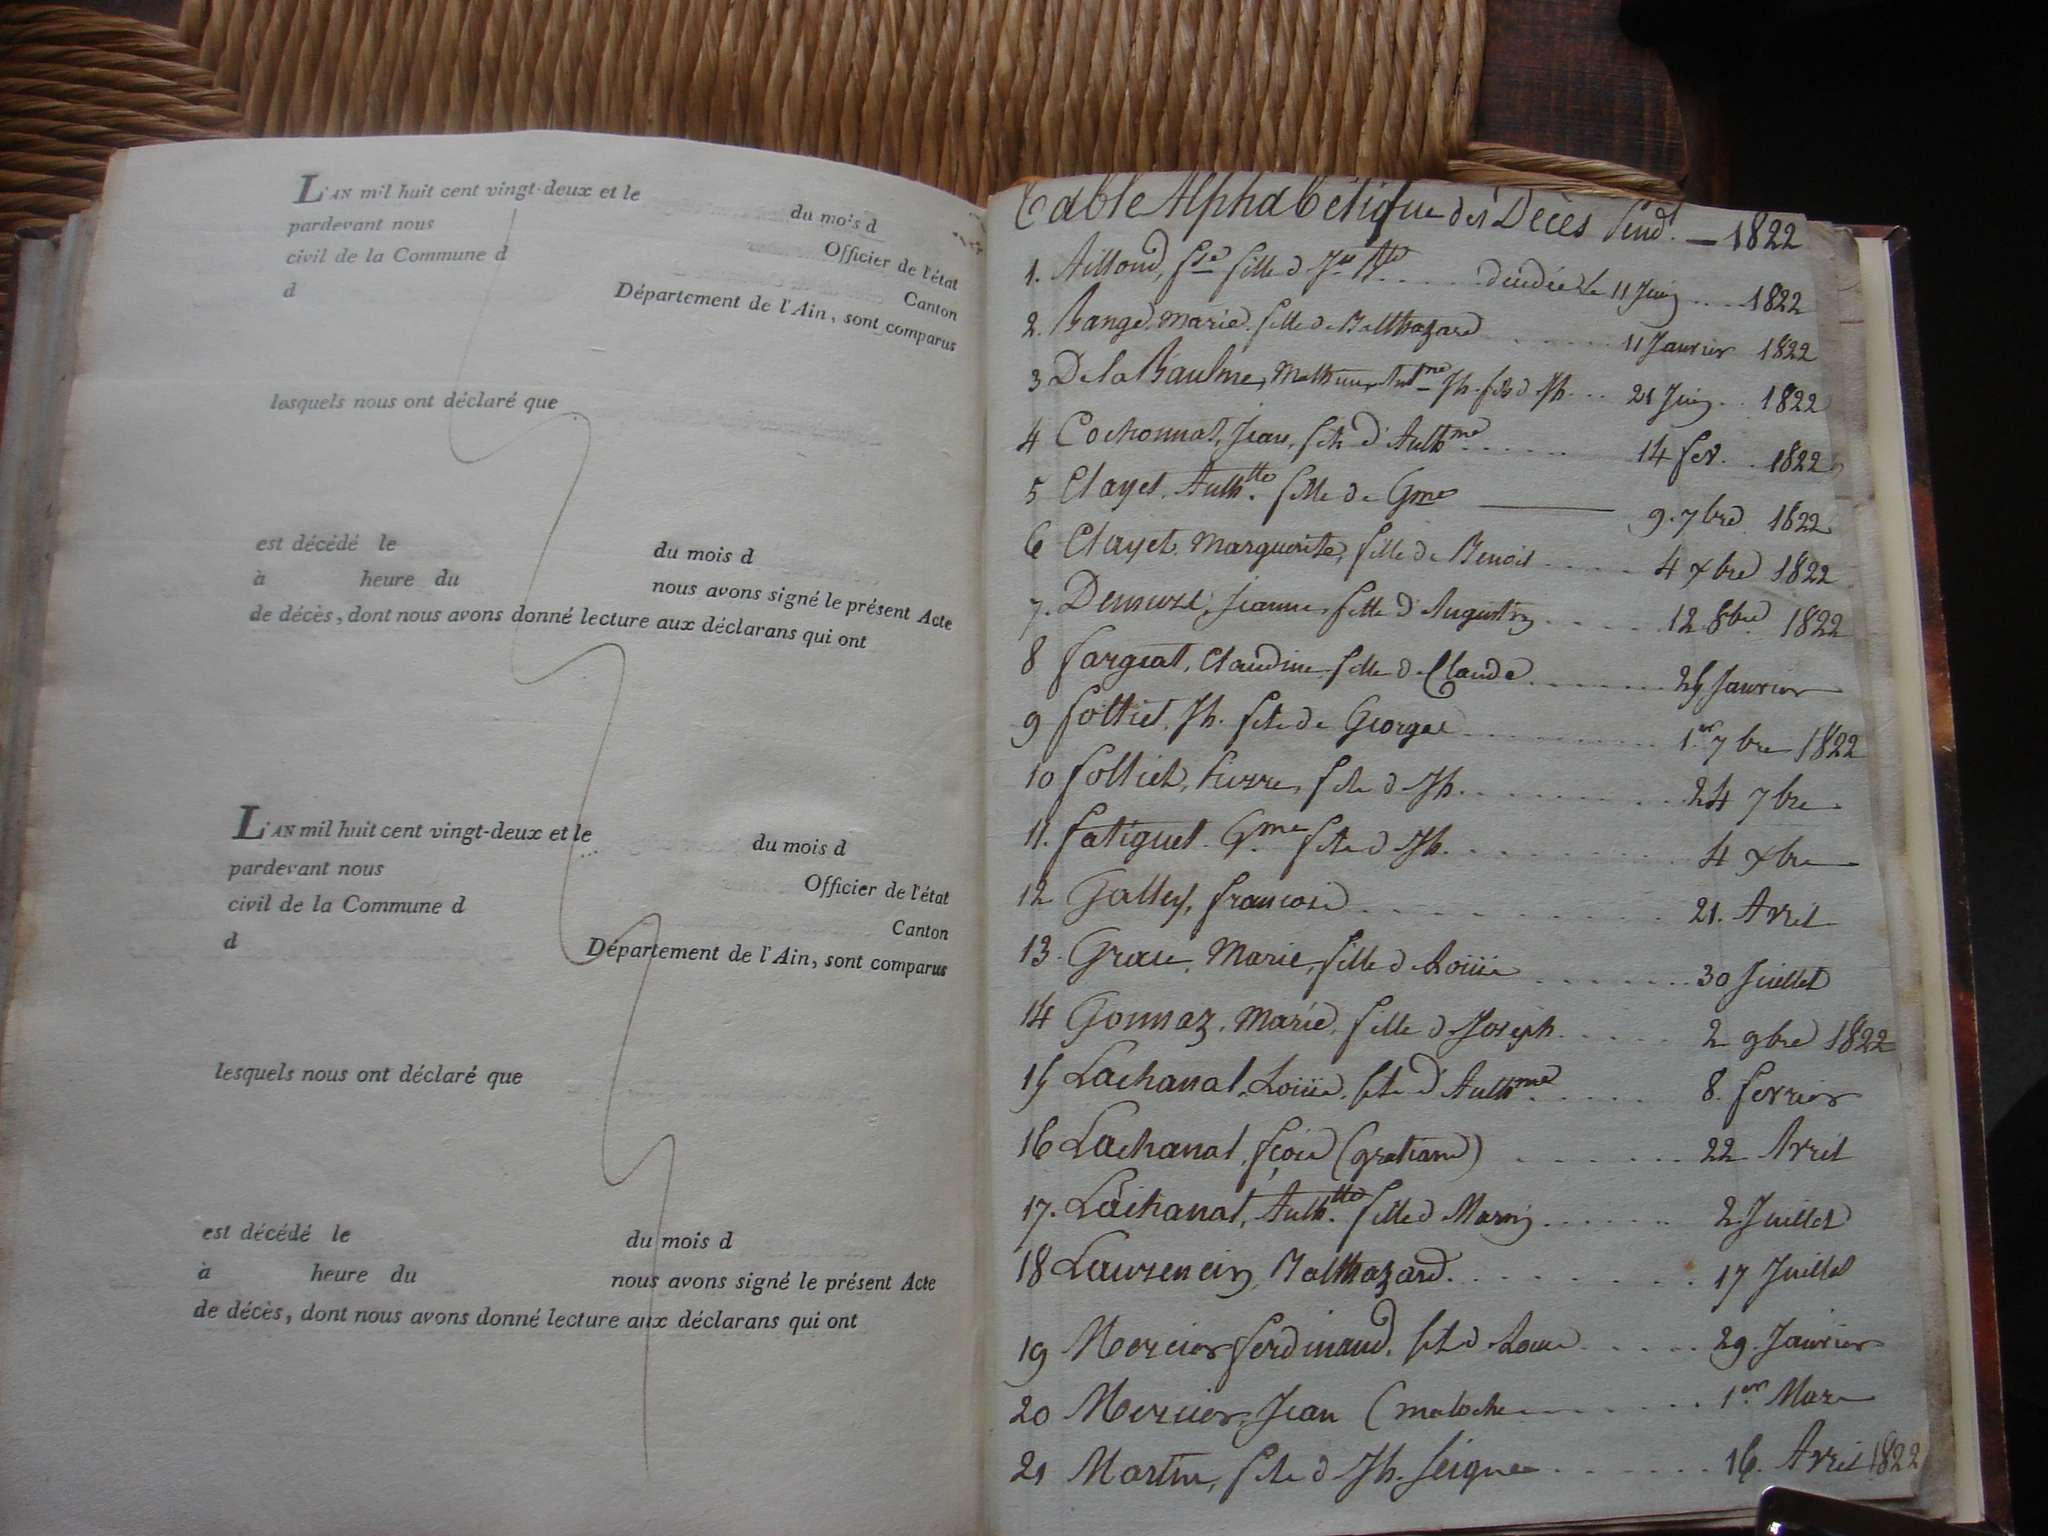 L'AN mil huit cent vingt-deux et le du mois d
pardevant nous Officier de l'état
civil de la Commune d Canton
d Département de l'Ain, sont comparus
lesquels nous ont déclaré que
est décédé le du mois d
à heure du nous avons signé le présent Acte
de décès, dont nous avons donné lecture aux déclarans qui ont
L'AN mil huit cent vingt-deux et le du mois d
pardevant nous Officier de l'état
civil de la Commune d Canton
d Département de l'Ain, sont comparus
lesquels nous ont déclaré que
est décédé le du mois d
à heure du nous avons signé le présent Acte
de décès, dont nous avons donné lecture aux déclarans qui ont
Table Alphabétique des Décès Pendt. — 1822
1. fille d décédée le 11 Juin 1822
2. Marie fille de Balthazard 11 Janvier 1822
3 De la Baulme, Jh. fils d Jh. 21 Juin 1822
4 Cochonnat, Jean, fils d'Anthme 14 fev. 1822
5 Clayet, Anthtte fille de Gme 9. 7bre 1822
6 Clayet Marguerite, fille de Benoit 4 xbre 1822
7. Jeanne fille d'Augustin 12 8bre 1822
8 fargeat, Claudine fille d Claude 25 Janvier
9 folliet, Jh. fils de George 1er 7bre 1822
10 folliet, Pierre, fils d Jh. 24 7bre
11. fatiguet Gme fils d Jh. 4 xbre
12 Galley, francois 21. Avril
13. Marie, fille d Louis 30 Juillet
14 Gonnaz, Marie, fille d Joseph 2 9bre 1822
15 Lachanal, Louis, fils d'Anthme 8. fevrier
16 Lachanal, fçois (gratiane) 22 Avril
17. Lachanal, Anthtte fille d Marin 2 Juillet
18 Laurencin, Balthazard 17 Juillet
19 Mercier ferdinand, fils d Louis 29. Janvier
20 Mercier, Jean (maloche 1er Mars
21 Martin, fils d Jh. 16. Avril 1822